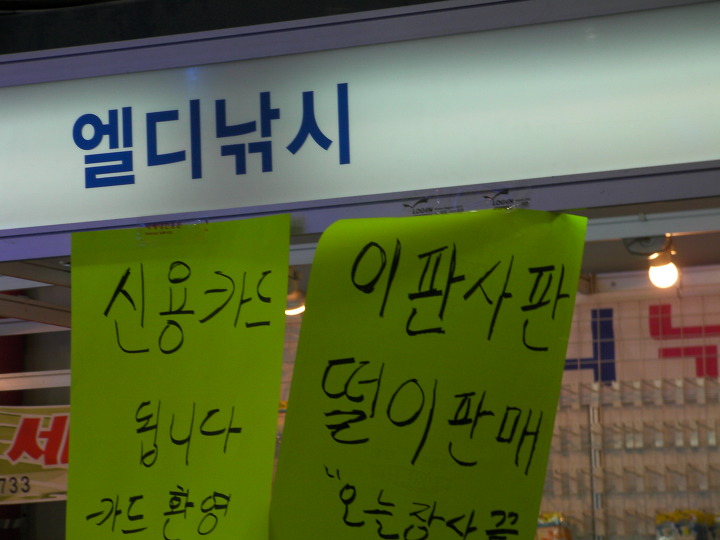 엘디낚시
신용카드
됩니다
카드 환영
이판사판
떨이판매
"오늘장사끝
세
733
LOGEN
LOGEN
낚